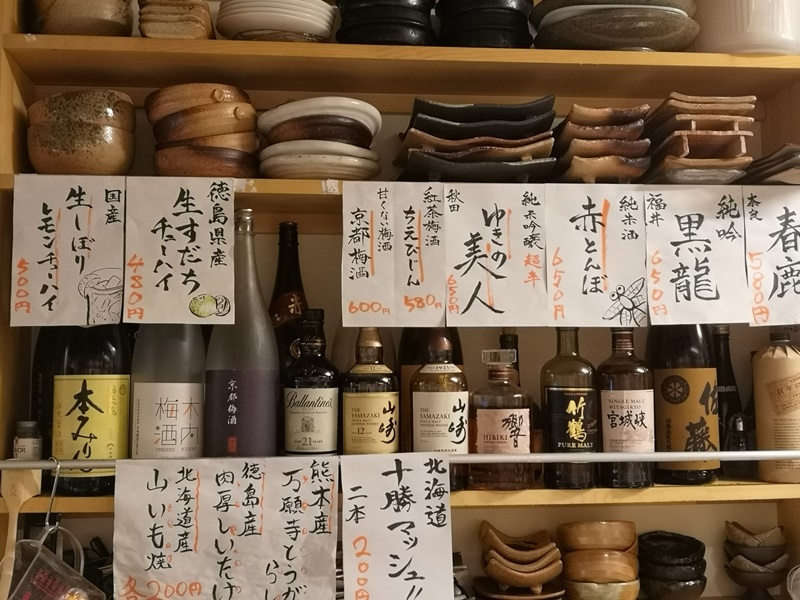 国産
生しぼり
レモンチューハイ
500円
徳島県産
生すだち
チューハイ
480円
甘くない梅酒
京都梅酒
600円
紅茶梅酒
ちえびじん
580円
秋田
純米吟醸 超辛
ゆきの美人
650円
純米酒
赤とんぼ
650円
福井
純吟
黒龍
650円
奈良
春鹿
580円
本みりん
木内
梅酒
京都梅酒
赤
Ballantine's
AGED 21 YEARS
THE
YAMAZAKI
12
山崎
THE
YAMAZAKI
山崎
響
HIBIKI
竹鶴
PURE MALT
SINGLE MALT
MIYAGIKYO
宮城峡
佐藤
熊本産
万願寺とうがらし
徳島産
肉厚しいたけ
北海道産
山いも焼
各200円
北海道
十勝マッシュ!!
二本
200円